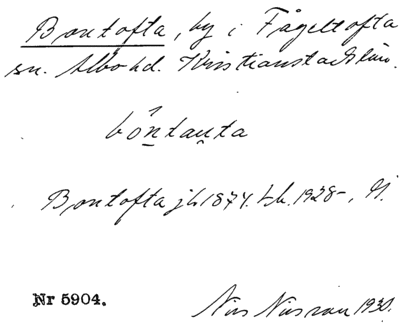 Bontofta, by i Fågeltofta
sn. Albo hd. Kristianstads län.
bo̊ntau̯ta
Bontofta jb 1874. tk. 1928-, N.
Nr 5904.
Nils Nilsson 1930.